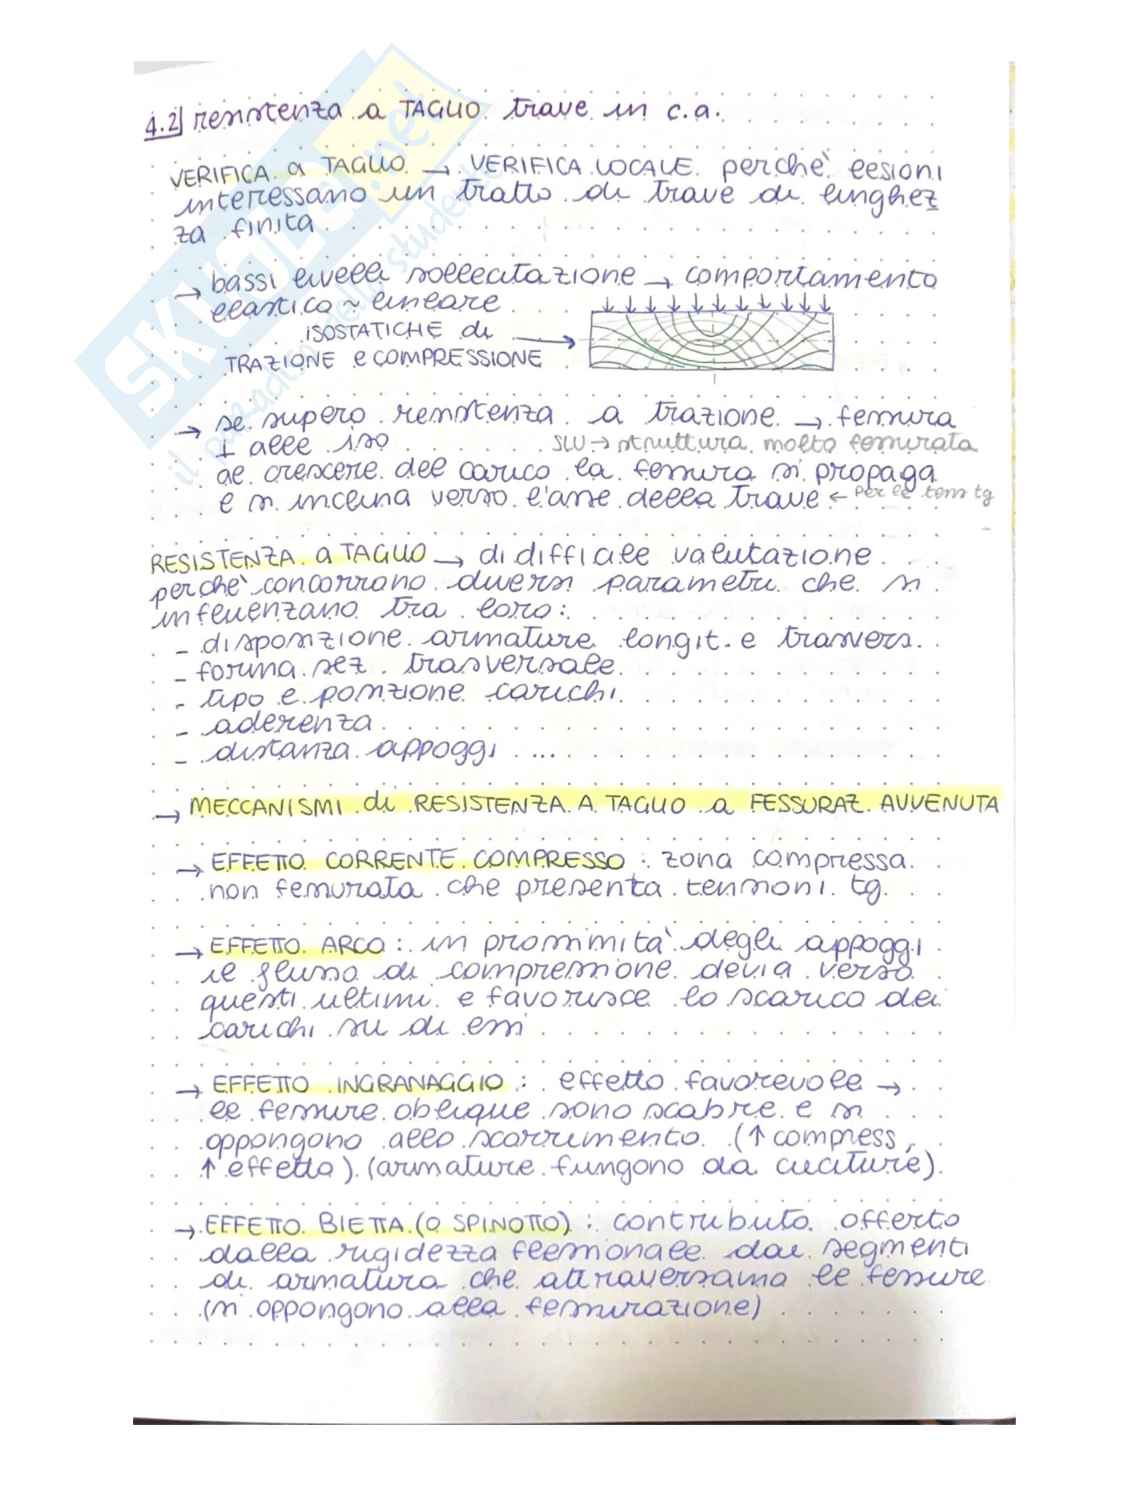 4.2) resistenza a TAGLIO trave in c.a.
VERIFICA a TAGLIO → VERIFICA LOCALE perchè lesioni
interessano un tratto di trave di lunghez
za finita
→ bassi livelli sollecitazione → comportamento
elastico ~ lineare
ISOSTATICHE di
TRAZIONE e COMPRESSIONE
→ se supero resistenza a trazione → fessura
⊥ alle iso
SLU → struttura molto fessurata
al crescere del carico la fessura si propaga
e si inclina verso l'asse della trave ← per le tens tg
RESISTENZA a TAGLIO → di difficile valutazione
perchè concorrono diversi parametri che si
influenzano tra loro:
- disposizione armature longit. e trasvers.
- forma sez. trasversale
- tipo e posizione carichi
- aderenza
- distanza appoggi ....
→ MECCANISMI di RESISTENZA A TAGLIO a FESSURAZ. AVVENUTA
→ EFFETTO CORRENTE COMPRESSO : zona compressa
non fessurata che presenta tensioni tg.
→ EFFETTO ARCO : in prossimità degli appoggi
il flusso di compressione devia verso
questi ultimi e favorisce lo scarico dei
carichi su di essi
→ EFFETTO INGRANAGGIO : effetto favorevole →
le fessure oblique sono scabre e si
oppongono allo scorrimento (↑ compress,
↑ effetto) (armature fungono da cuciture).
→ EFFETTO BIETTA (O SPINOTTO) : contributo offerto
dalla rigidezza flessionale dai segmenti
di armatura che attraversano le fessure
(si oppongono alla fessurazione)
SKUOLA.net
il paradiso dello studente